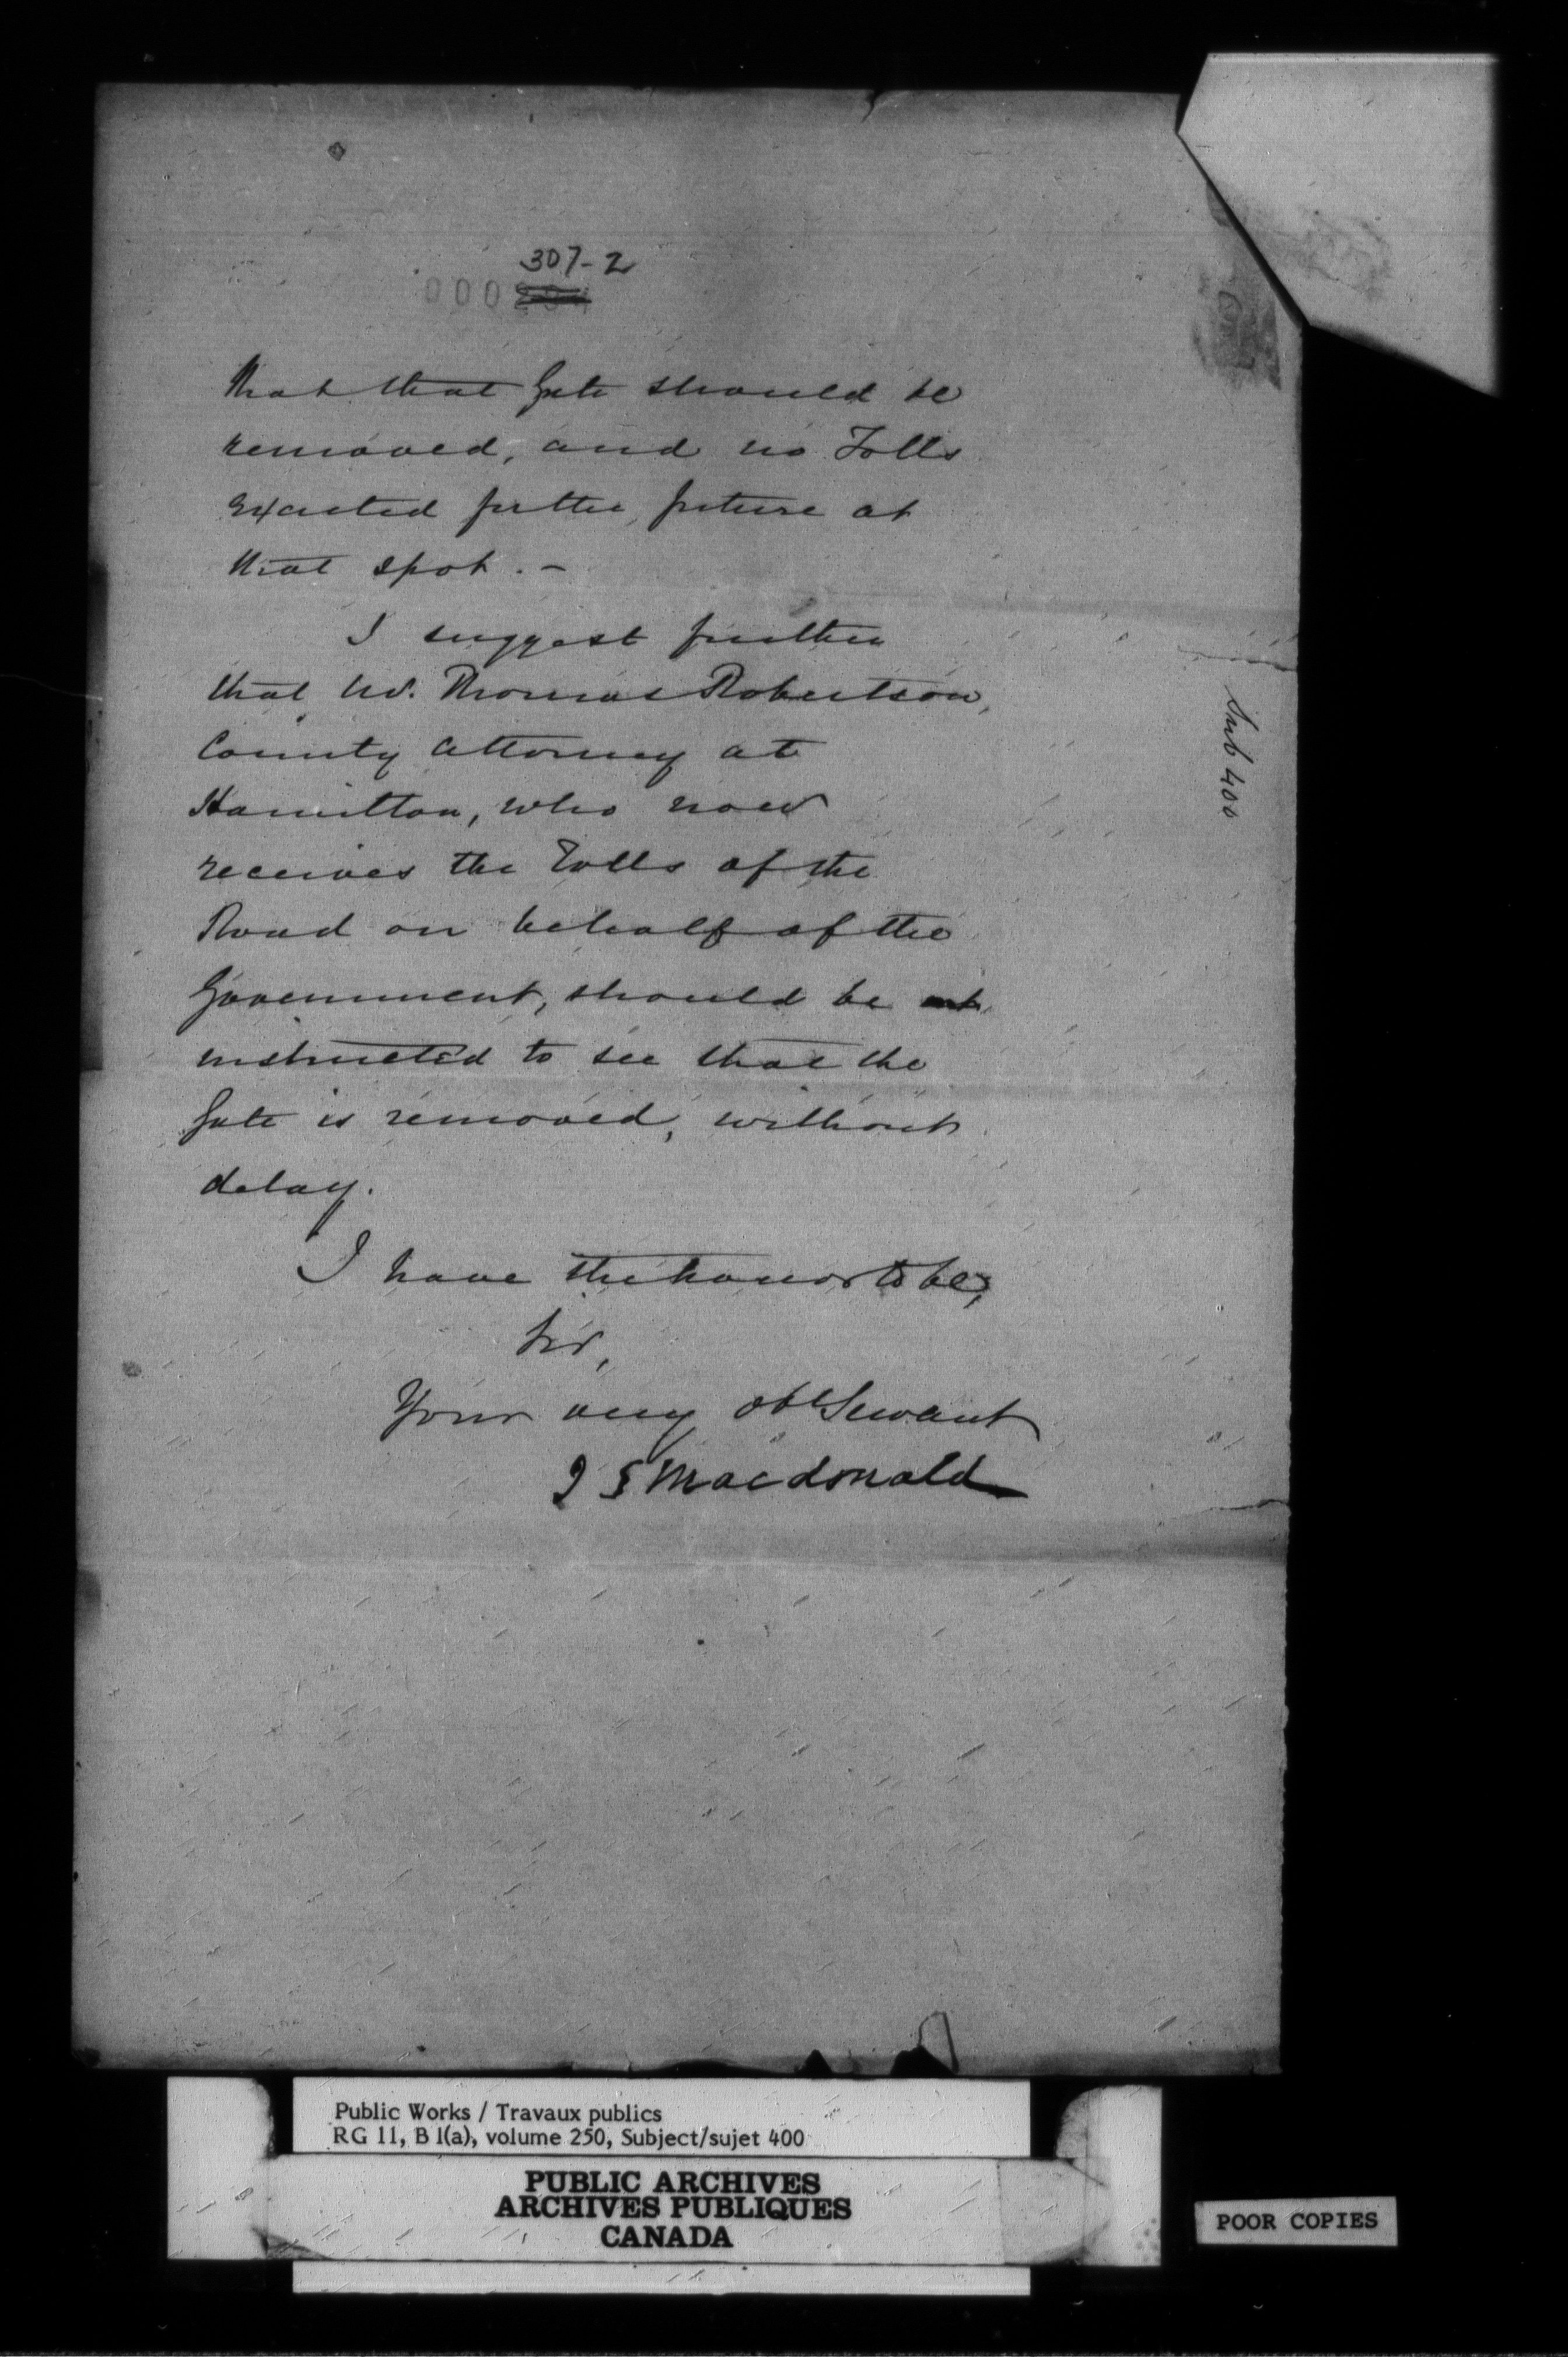 307-2
000
that that Gate should be
removed, and no Tolls
exacted for the future at
that spot. -
I suggest further
that Mr. Thomas Robertson,
County Attorney at
Hamilton, who now
receives the Tolls of the
Road on behalf of the
Government, should be
instructed to see that the
Gate is removed, without
delay.
I have the honor to be,
Sir,
Your very obt Servant
J S Macdonald
Sub 400
Public Works / Travaux publics
RG 11, B 1(a), volume 250, Subject/sujet 400
PUBLIC ARCHIVES
ARCHIVES PUBLIQUES
CANADA
POOR COPIES